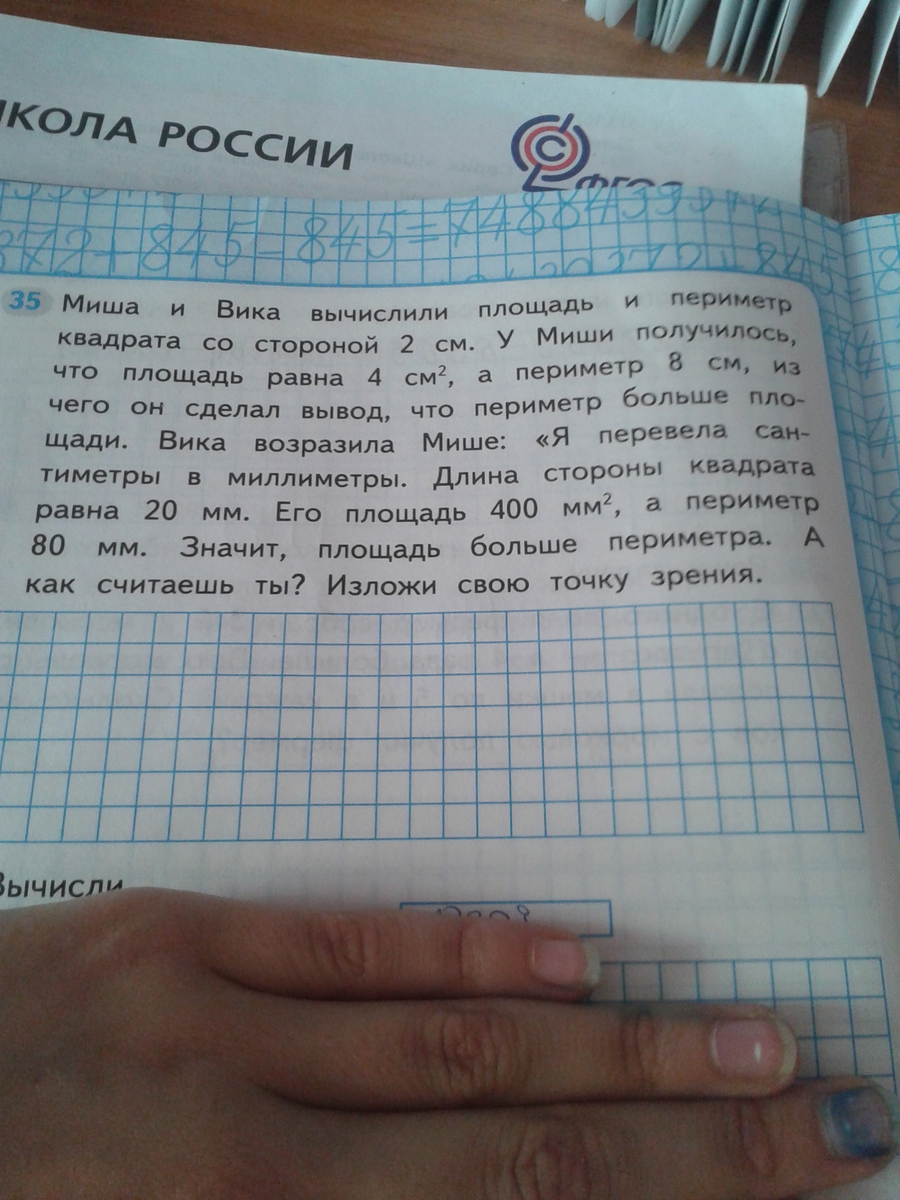 ШКОЛА РОССИИ
ФГОС
372 + 845 - 845 = 7488433
35 Миша и Вика вычислили площадь и периметр
квадрата со стороной 2 см. У Миши получилось,
что площадь равна 4 см², а периметр 8 см, из
чего он сделал вывод, что периметр больше пло-
щади. Вика возразила Мише: «Я перевела сан-
тиметры в миллиметры. Длина стороны квадрата
равна 20 мм. Его площадь 400 мм², а периметр
80 мм. Значит, площадь больше периметра. А
как считаешь ты? Изложи свою точку зрения.
Вычисли